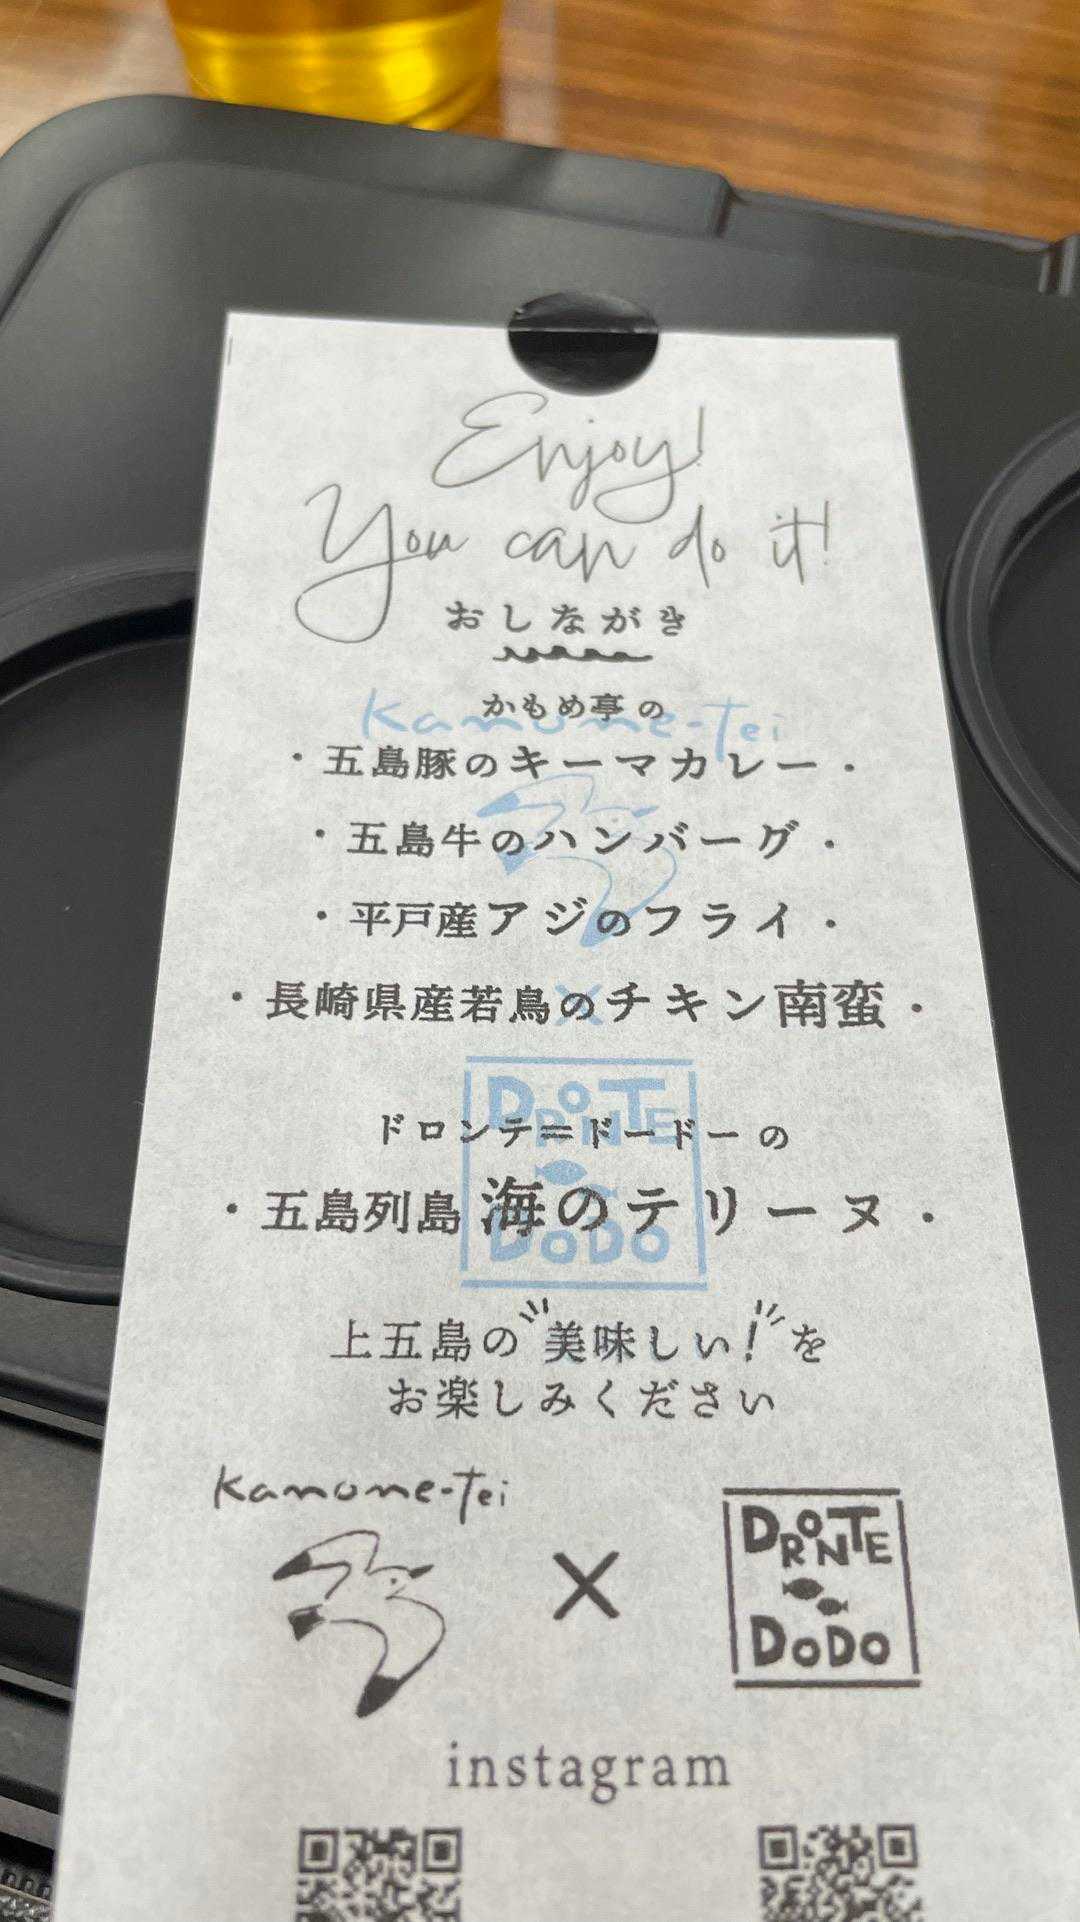 Enjoy!
You can do it!
おしながき
かもめ亭の
Kamome-Tei
・五島豚のキーマカレー・
・五島牛のハンバーグ・
・平戸産アジのフライ・
・長崎県産若鳥のチキン南蛮・
×
DRONTE
ドロンテ=ドードーの
・五島列島 海のテリーヌ・
DODO
上五島の"美味しい!"を
お楽しみください
Kamome-Tei
×
DRONTE
DODO
instagram